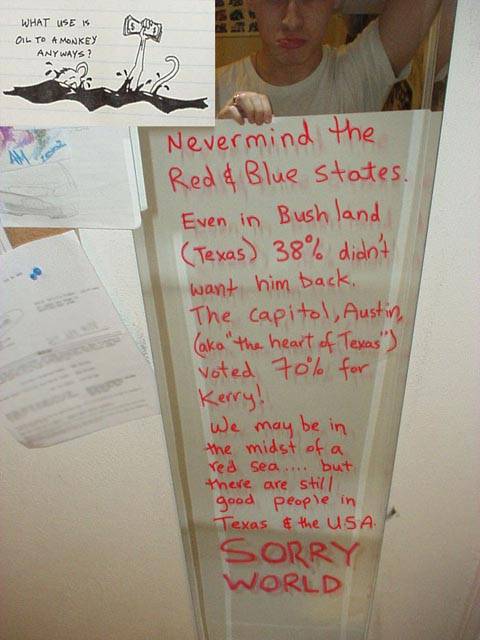 WHAT USE IS
OIL TO A MONKEY
ANYWAYS?
AM
Nevermind the
Red & Blue states.
Even in Bushland
(Texas) 38% didn't
want him back.
The capitol, Austin,
(aka "the heart of Texas")
voted 70% for
Kerry!
We may be in
the midst of a
red sea.... but
there are still
good people in
Texas & the USA.
SORRY
WORLD